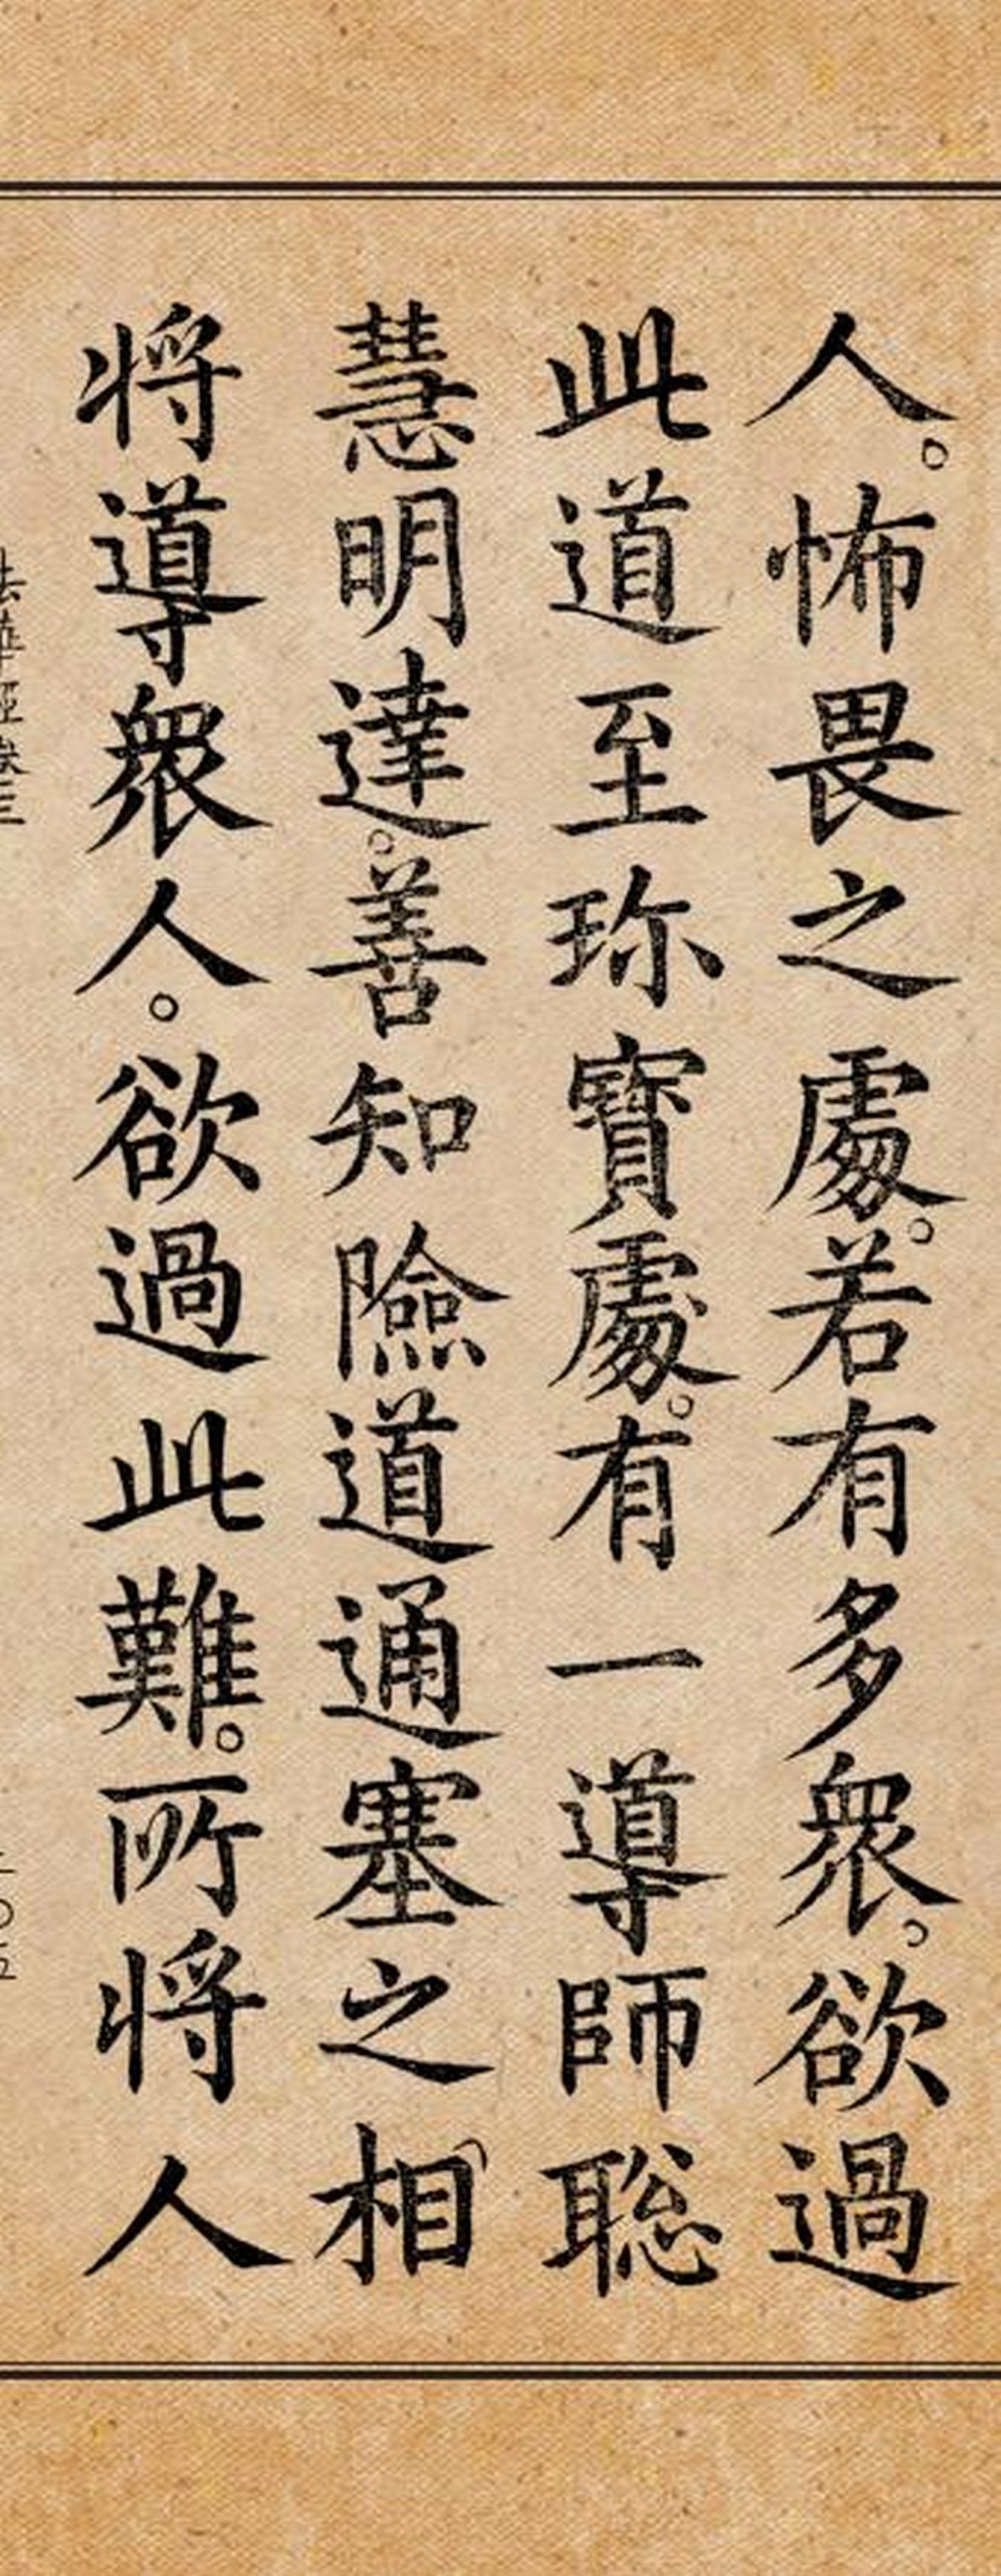 人。怖畏之處。若有多衆。欲過
此道至珎寶處。有一導師聡
慧明達。善知險道通塞之相
将導衆人。欲過此難。所将人
法華經卷三
二〇五